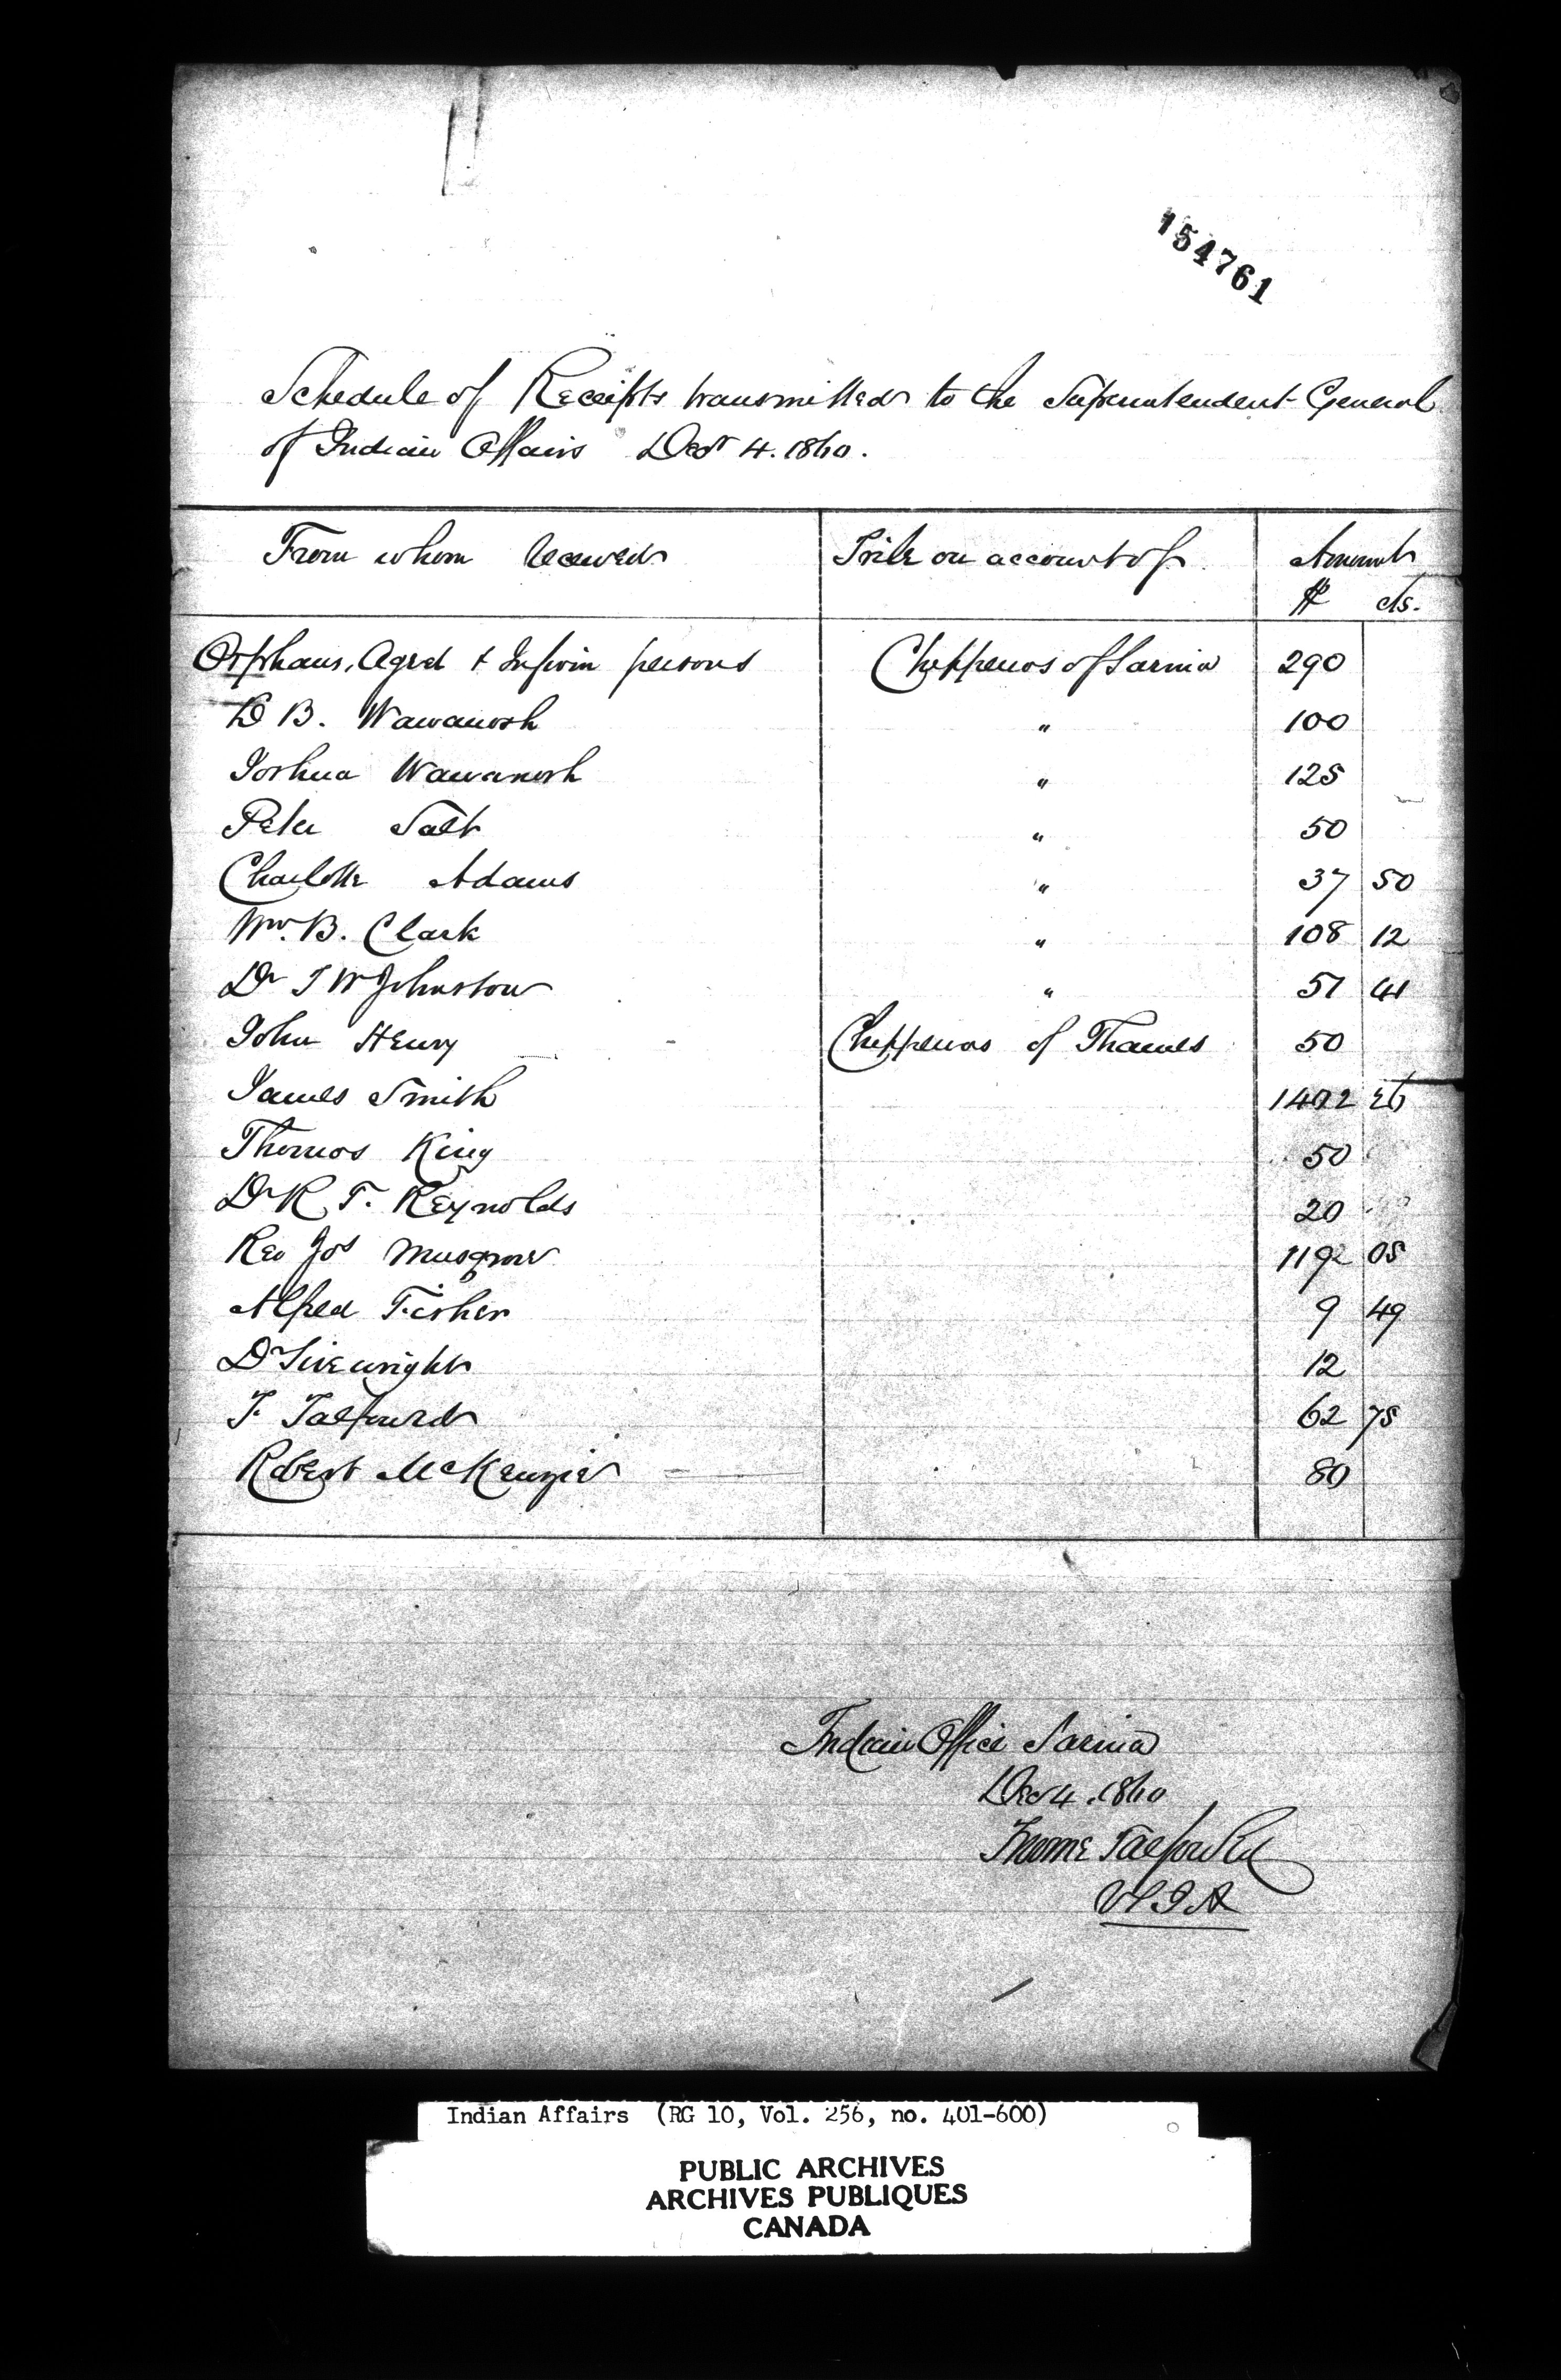 154761
Schedule of Receipts transmitted to the Superintendent General
of Indian Affairs Decr 4. 1860.
From whom received Tribe on account of Amount
$ cts.
Orphans, Aged & Infirm persons Chippewas of Sarnia 290
D B. Wawanosh " 100
Joshua Wawanosh " 125
Peter Salt " 50
Charlotte Adams " 37 50
Wm. B. Clark " 108 12
Dr T W Johnston " 51 41
John Henry Chippewas of Thames 50
James Smith 1402 26
Thomas King 50
Dr R T. Reynolds 20
Rev Jos Musgrove 1192 05
Alfred Fisher 9 49
Dr Sivewright 12
F. Talfourd 62 75
Robert McKenzie 80
Indian Office Sarnia
Dec 4. 1860
Froome Talfourd
V S I A
Indian Affairs (RG 10, Vol. 256, no. 401-600)
PUBLIC ARCHIVES
ARCHIVES PUBLIQUES
CANADA